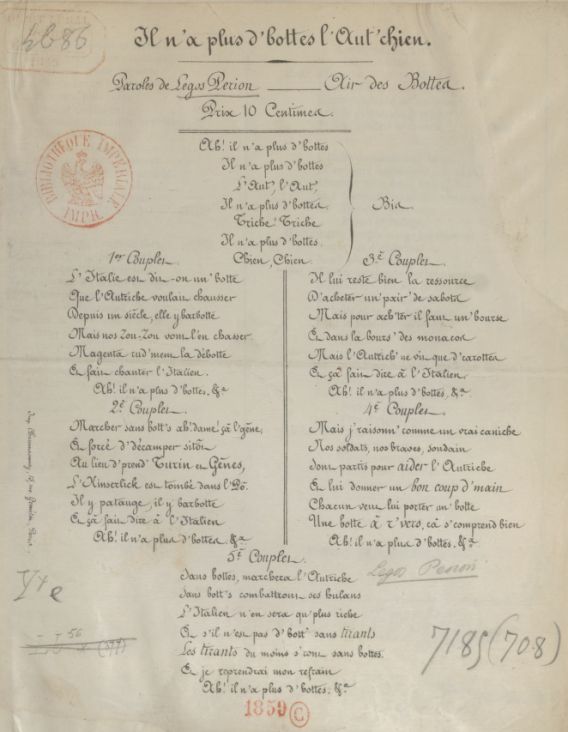 4686
Il n'a plus d'bottes l'Aut'chien.
Paroles de Legos Perion ——— Air des Bottes.
Prix 10 Centimes.
BIBLIOTHÈQUE IMPÉRIALE
IMPR.
Ah! il n'a plus d'bottes
Il n'a plus d'bottes
L'Aut, l'Aut,
Il n'a plus d'bottes.
Triche Triche
Il n'a plus d'bottes.
Chien, Chien.
Bis
1er Couplet.
L'Italie est dit-on un' botte
Que l'Autriche voulait chausser
Depuis un siècle, elle y barbotte
Mais nos Zou-Zou vont l'en chasser
Magenta rud'ment la débotte
Et fait chanter l'Italien.
Ah! il n'a plus d'bottes, &a
2e Couplet.
Marcher sans bott's ah! dame! çà l'gêne,
Et forcé d'décamper sitôt
Au lieu d'prend' Turin et Gênes,
L'Kinserlick est tombé dans l'Pô.
Il y patauge, il y barbotte
Et çà fait dire à l'Italien
Ah! il n'a plus d'bottes. &a
3e Couplet.
Il lui reste bien la ressource
D'acheter un'pair' de sabots
Mais pour ach'ter il faut un'bourse
Et dans la bours' des monacos
Mais l'Autrich' ne vit que d'carottes
Et çà fait dire à l'Italien.
Ah! il n'a plus d'bottes, &a
4e Couplet.
Mais j'raisonn' comme un vrai caniche
Nos soldats, nos braves, soudain
Sont partis pour aider l'Autriche
Et lui donner un bon coup d'main
Chacun veut lui porter un'botte
Une botte à r'vers, çà s'comprend bien
Ah! il n'a plus d'bottes, &a
5e Couplet.
Sans bottes, marchera l'Autriche
Sans bott's combattront ses hulans
L'Italien n'en sera qu'plus riche
Et s'il n'est pas d'bott' sans tirants
Les tirants du moins s'ront sans bottes.
Et je reprendrai mon refrain
Ah! il n'a plus d'bottes. &a
Legos Perion
Yte
56
7185 (708)
1859